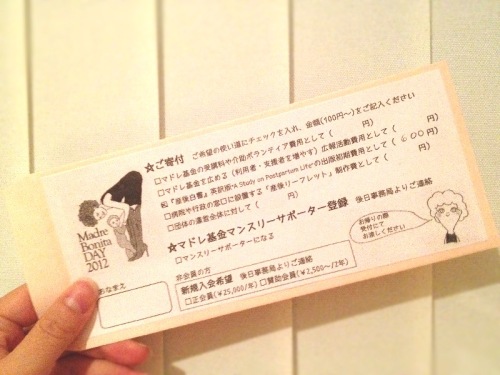 ☆ご寄付 ご希望の使い道にチェックを入れ、金額(100円〜)をご記入ください
□マドレ基金の受講料や介助ボランティア費用として( 円)
□マドレ基金を広める(利用者・支援者を増やす)広報活動費用として( 600円)
『産後白書』英訳版"A Study on Postpartum Life"の出版週期費用として( 円)
□病院や行政の窓口に設置する「産後リーフレット」制作費として( 円)
□団体の運営全体に対して( 円)
☆マドレ基金マンスリーサポーター登録 後日事務局よりご連絡
□マンスリーサポーターになる
非会員の方
新規入会希望 後日事務局よりご連絡
□正会員(¥25,000/年) □賛助会員(¥2,500〜/年)
Madre
Bonita
DAY
2012
おなまえ
お帰りの際
受付にて
お渡しください